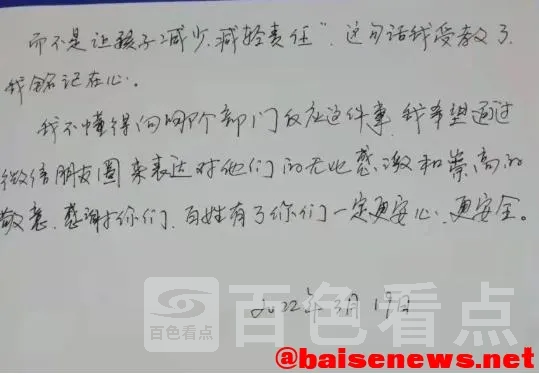 而不是让孩子减少、减轻责任”，这句话我受教了，
我铭记在心。
我不懂得向哪个部门反应这件事，我希望通过
微信朋友圈来表达对他们的无比感激和崇高的
敬意，感谢你们，百姓有了你们一定更安心、更安全。
2022年3月19日
百色看点
@baisenews.net